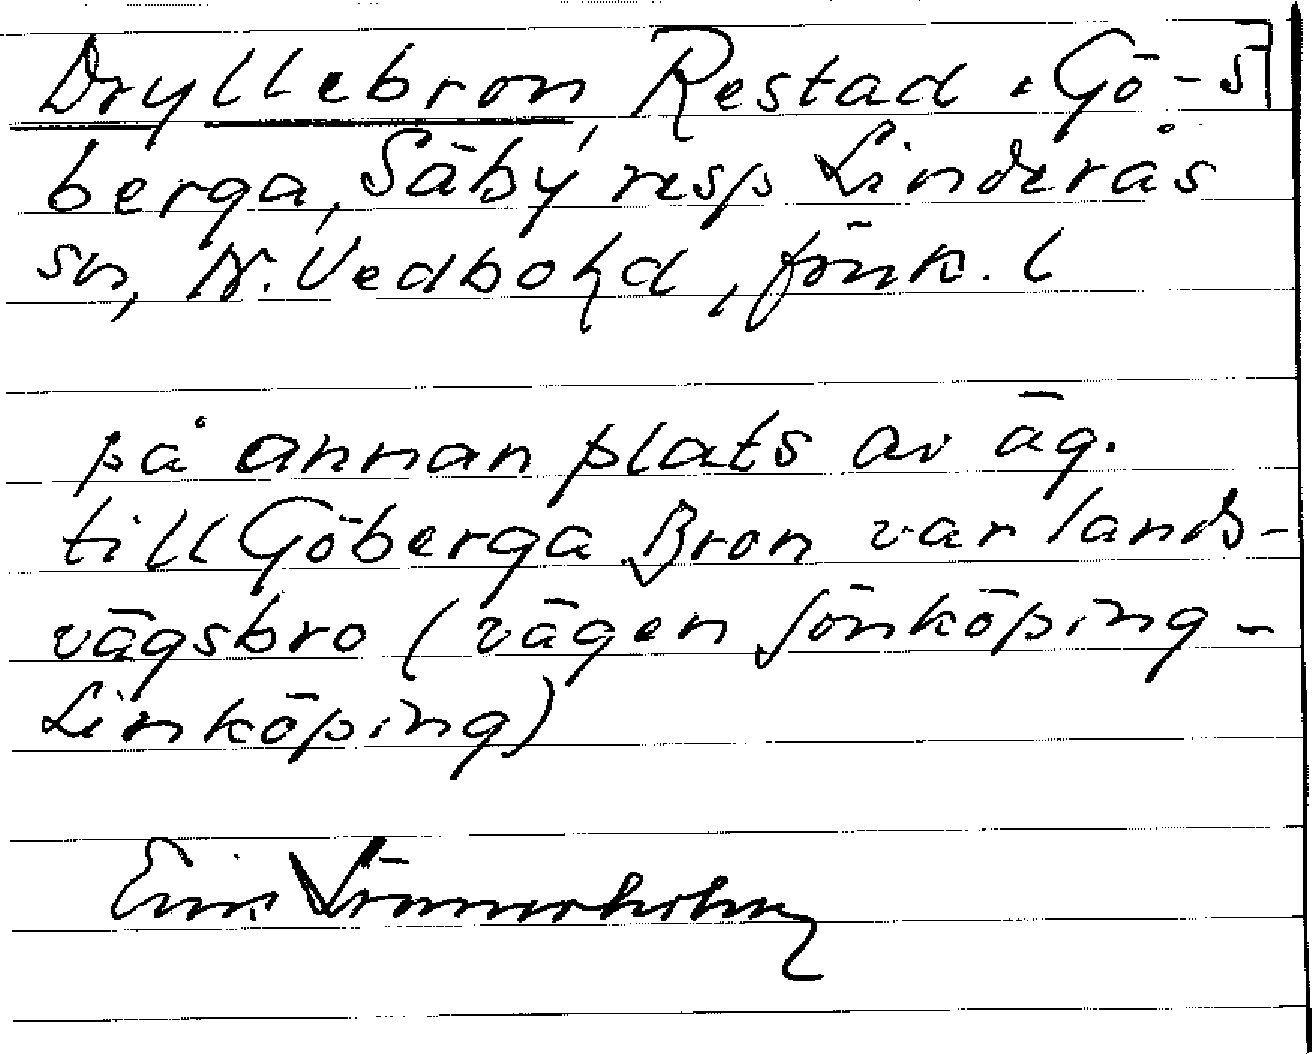 Dryllebron, Restad o Gö- 5
berga, Säby resp Linderås
sn, N. Vedbohd, Jönk. l
på annan plats av äg.
till Göberga Bron var lands-
vägsbro (vägen Jönköping -
Linköping)